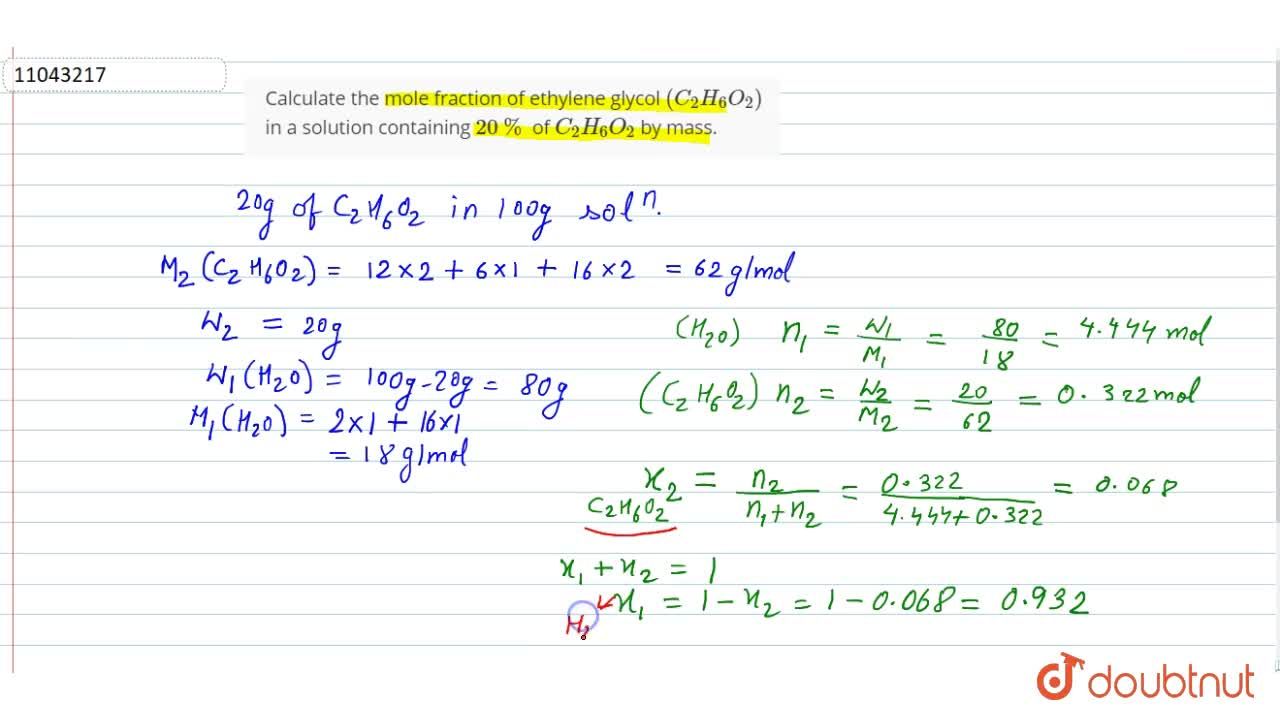 11043217
Calculate the mole fraction of ethylene glycol (C₂H₆O₂)
in a solution containing 20 % of C₂H₆O₂ by mass.
20g of C₂H₆O₂ in 100g solⁿ.
M₂ (C₂H₆O₂) = 12×2 + 6×1 + 16×2 = 62 g/mol
W₂ = 20g
W₁ (H₂O) = 100g-20g = 80g
M₁ (H₂O) = 2×1 + 16×1
= 18 g/mol
(H₂O) n₁ = W₁/M₁ = 80/18 = 4.444 mol
(C₂H₆O₂) n₂ = W₂/M₂ = 20/62 = 0.322 mol
x₂ = n₂/(n₁+n₂) = 0.322/(4.444+0.322) = 0.068
C₂H₆O₂
x₁ + x₂ = 1
x₁ = 1 - x₂ = 1 - 0.068 = 0.932
H₂
doubtnut